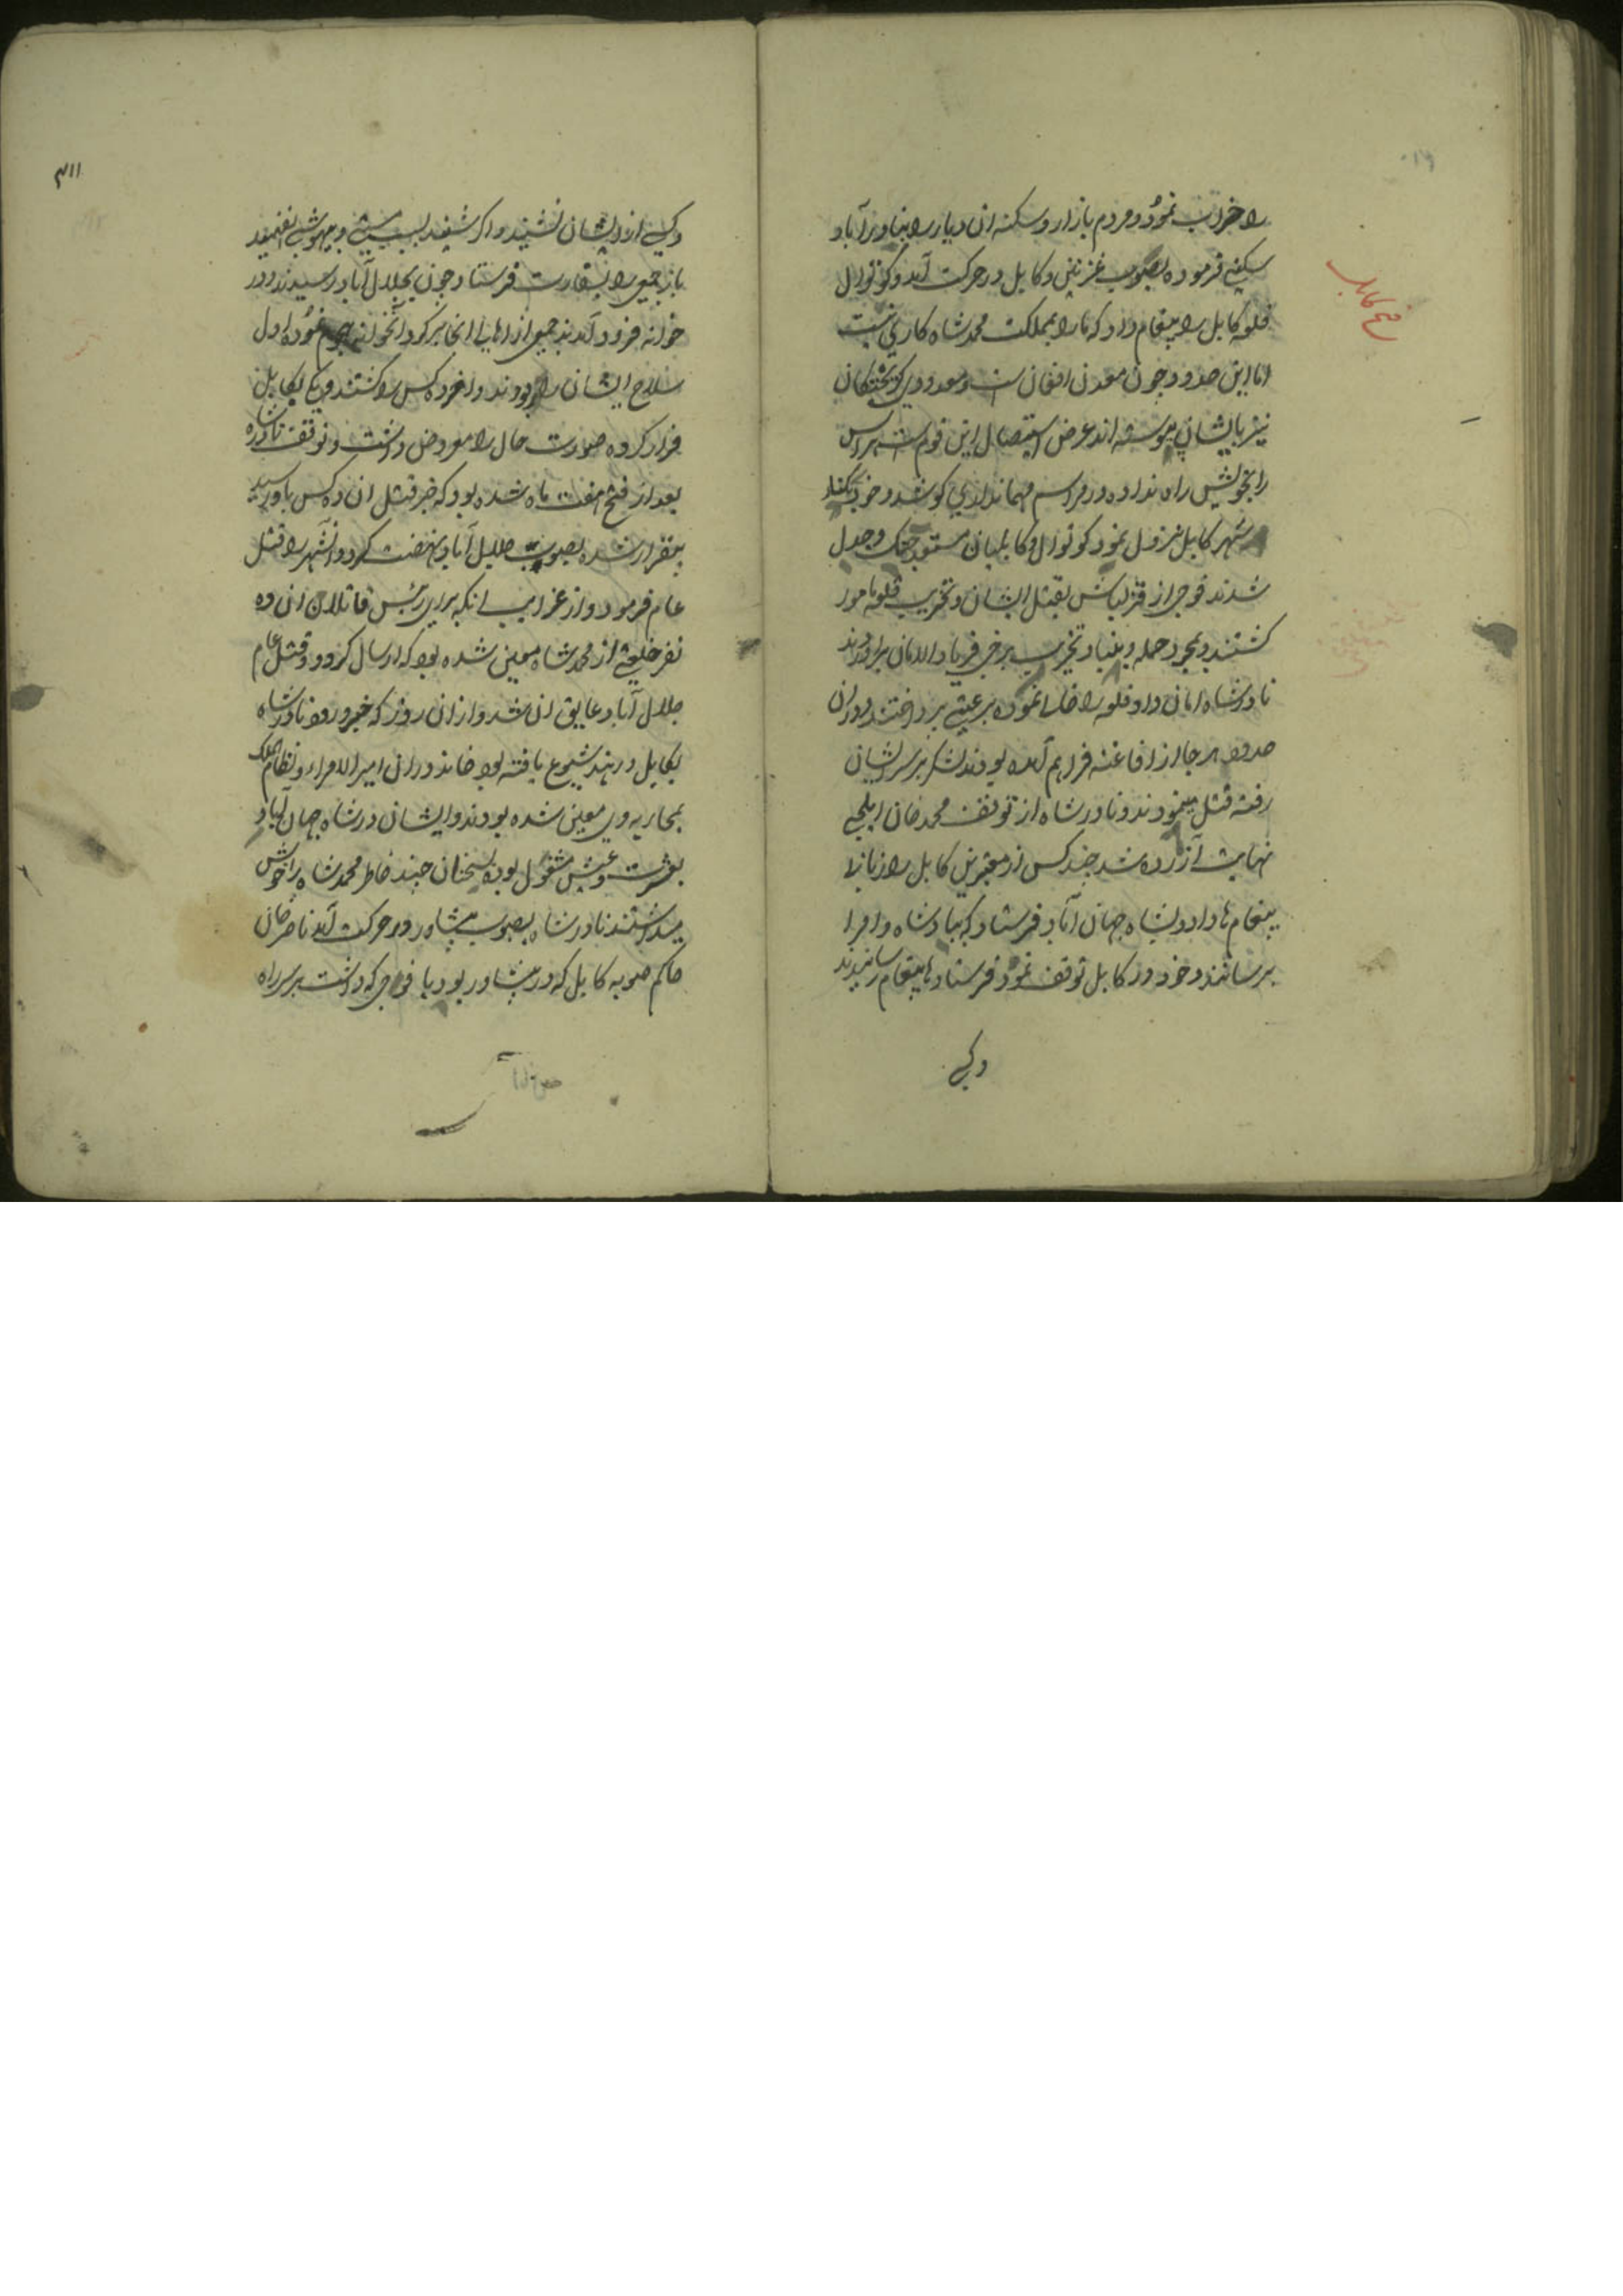 فتح کابل
را خراب نموده و مردم بازار و سکنه ان دیار را بنادرآباد
سکنی فرموده بصوب غزنین و کابل در حرکت آمد و کوتوال
قلعه کابل را پیغام داد که ما را بمملکت محمد شاه کاری نیست
اما این حدود چون معدن افغان است و معدودی کریختکان
نیز بایشان پیوسته اند غرض استیصال این قوم است هراس
را بخویش راه نداده در مراسم مهمانداری کوشد و خود بکنار
شهر کابل نزول نمود کوتوال و کابلیان مستعد جنک و جدل
شدند فوجی از قزلباش بقتل ایشان و تخریب قلعه مامور
کشتند و بمجرد حمله و بنیاد تخریب برخی فریاد الامان براوردند
نادرشاه امان داد و قلعه را خالی نموده برعیتی پرداختند و دران
حدود هر جا از افاغنه فراهم آمده بودند لشکر بر سر ایشان
رفته قتل مینمودند و نادرشاه از توقف محمد خان ایلچی
نهایت آزرده شد چند کس از معتبرین کابل را زبانی
پیغام ها داد و بشاه جهان آباد فرستاد که بپادشاه و امرا
برسانند و خود در کابل توقف نمود فرستادها پیغام رسانیدند
وکسی
۳۱۱
وکسی از ایشان نشنید و اکر شنید بسبب مستی و بیهوشی نفهمید
باز جمعی را بسفارت فرستاد چون بجلال آباد رسیدند در
خوانه فرود آمدند جمعی از اهالی انجا بر کرد انخوانه هجوم نموده اول
سلاح ایشان را ربودند و اخر ده کس را کشتند و یکی بکابل
فرار کرده صورت حال را معروض داشت و توقف نادرشاه
بعد از فتح هفت ماه شده بود که خبر قتل ان ده کس باو رسید
بیقرار شده بصوب جلال آباد نهضت کرد و انشهر را قتل
عام فرمود و از غرایب انکه برای رئیس قاتلان ان ده
نفر خلعتی از محمد شاه معین شده بود که ارسال کردد و قتل عام
جلال آباد عایق ان شد و از ان روز که خبر ورود نادرشاه
بکابل در هند شیوع یافته بود خاندوران امیر الامراء و نظام الملک
بمحاربه وی معین شده بودند و ایشان در شاه جهان آباد
بعشرت و عیش مشغول بوده بسخنان چند خاطر محمد شاه را خوش
میداشتند نادرشاه بصوب پیشاور در حرکت آمد ناصر خان
حاکم صوبه کابل که در پیشاور بود با فوجی که داشت بر سر راه